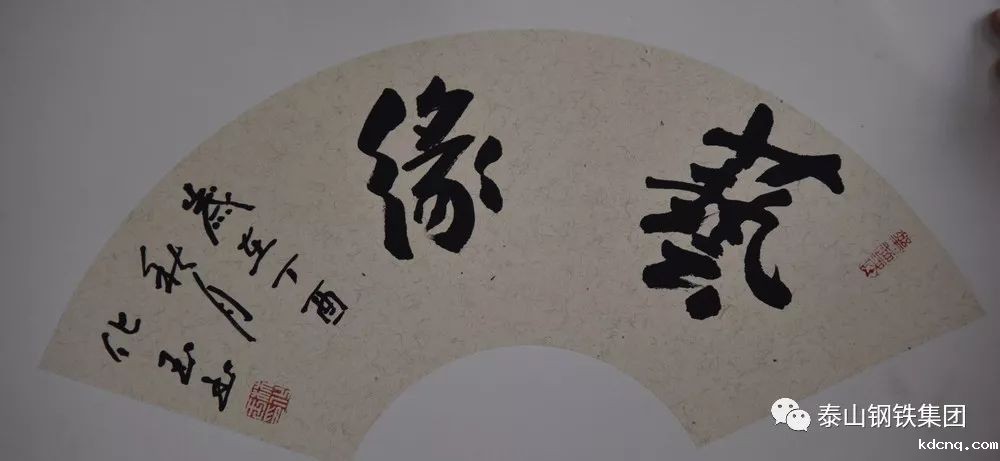 藝缘
歲在丁酉
秋月
化玉书
泰山钢铁集团
kdcnq.com